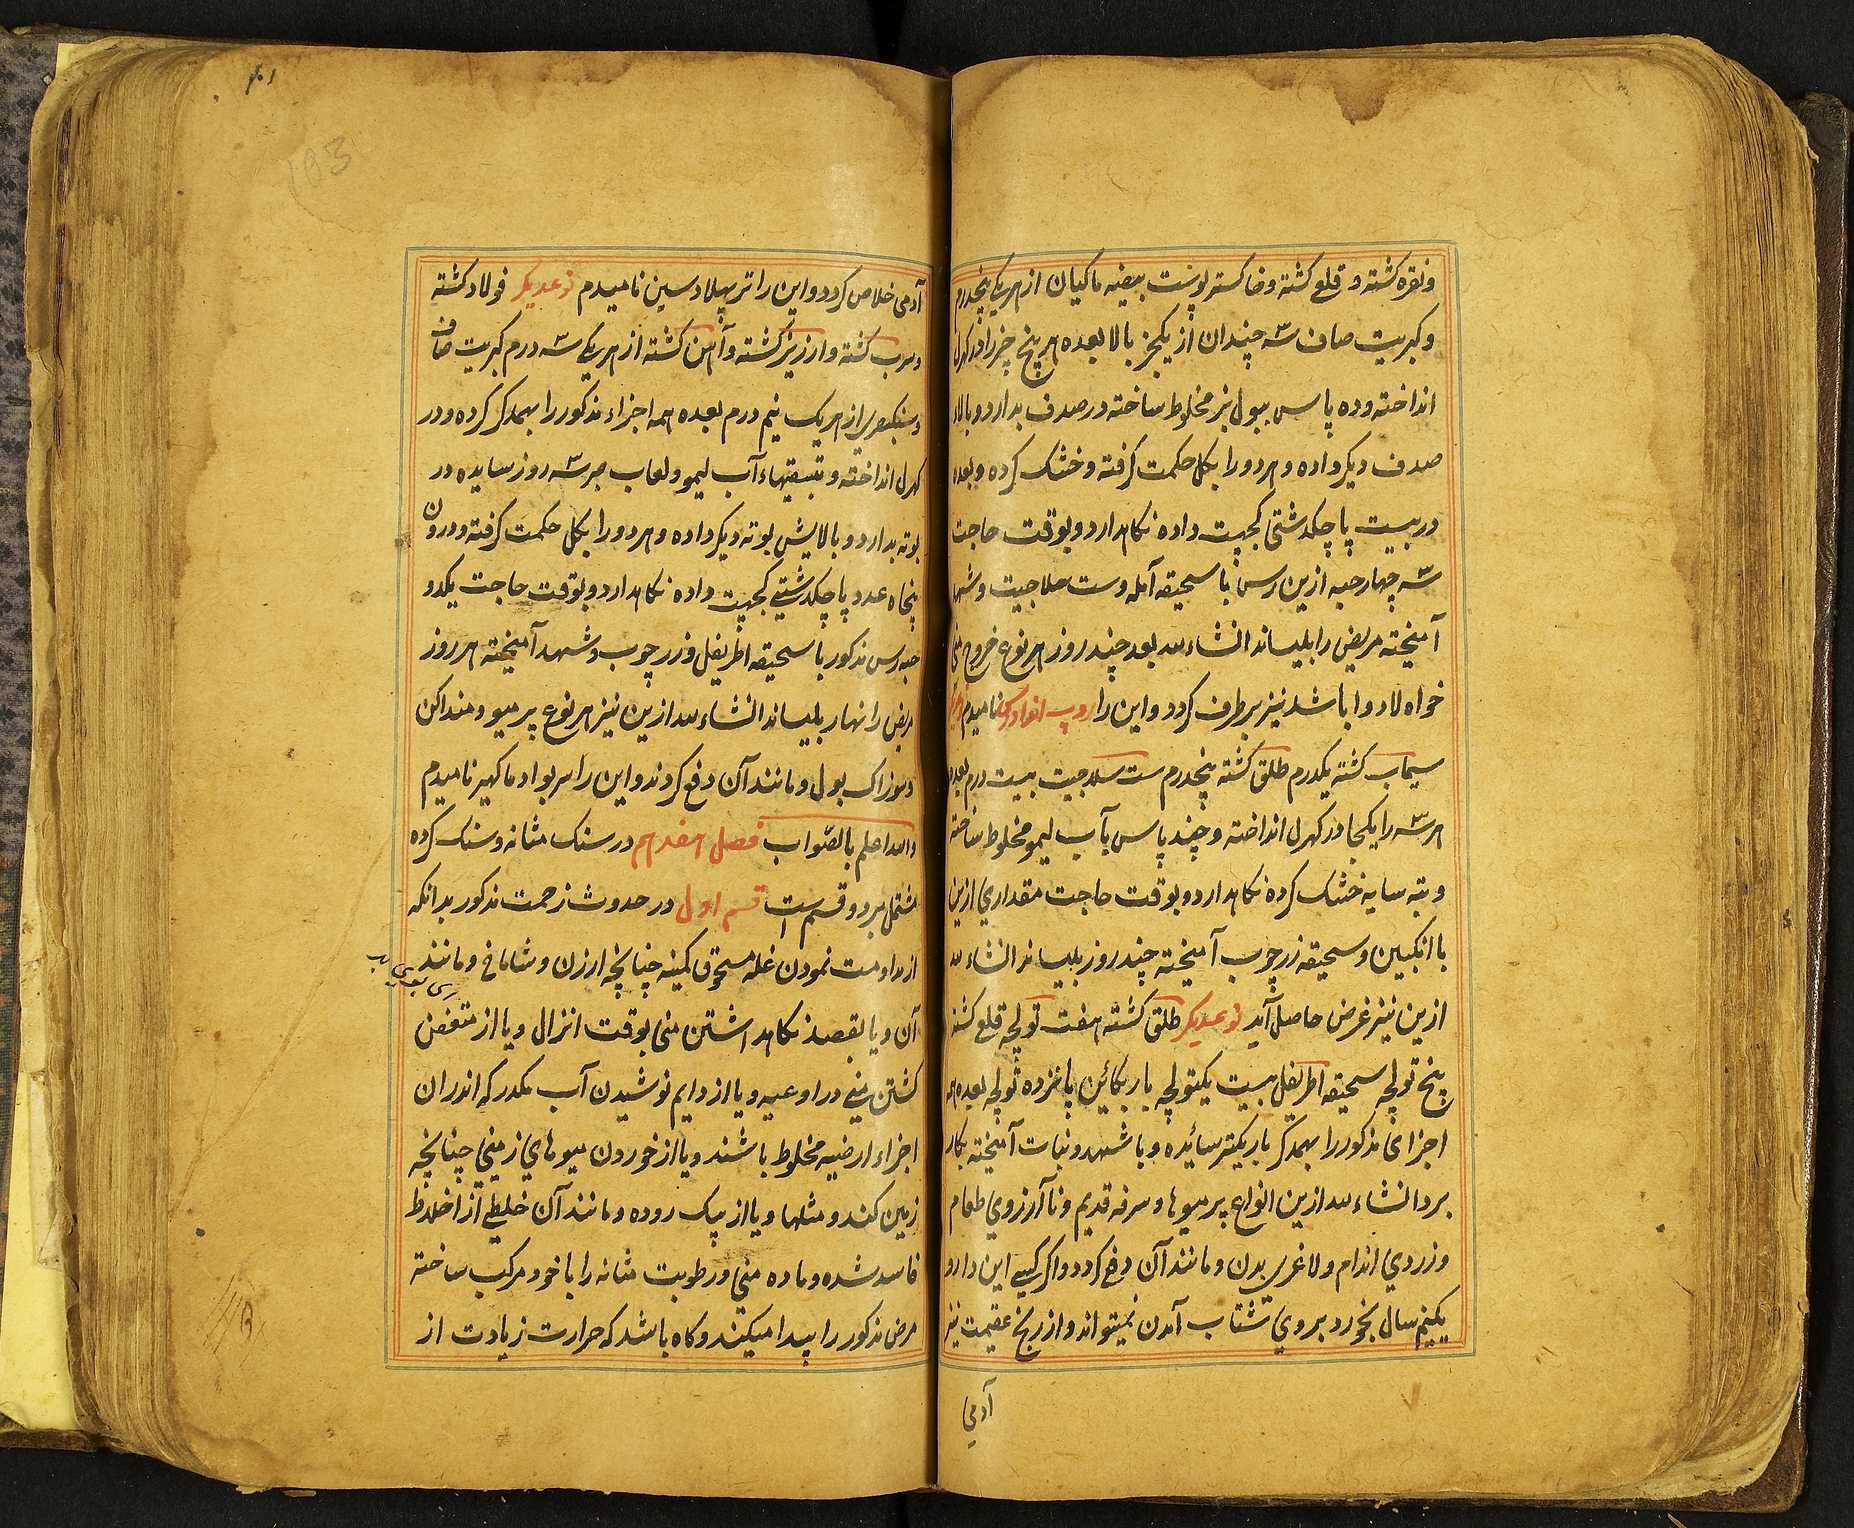 ونقره کشته و قلع کشته وخاکستر پوست بیضه ماکیان از هر یکی پنجدرم
وکبریت صاف سه چندان از یکجز بالا بعده هر پنج جز را در کهرل
انداخته وده پاس ببول بز مخلوط ساخته در صدف بدارد وبالا
صدف دیکر داده و هر دو را بکل حکمت کرفته وخشک کرده وبعده
در بیست پاچکدشتی کجپت داده نکاهدارد وبوقت حاجت
سه چهار حبه ازین رس با سحیقه آمله وست سلاجیت وشهد
آمیخته مریض را بلیساند انشاءالله بعد چند روز هر نوع خروج منی
خواه لادوا باشد نیز برطرف کردد واین را روپ نامیدم
سیماب کشته یکدرم طلق کشته پنجدرم ست سلاجیت بیست درم بعده
هر سه را یکجا در کهرل انداخته وچند پاس بآب لیمو مخلوط ساخته
وبته سایه خشک کرده نکاهدارد وبوقت حاجت مقداری ازین
با انکبین وسحیقه زرچوب آمیخته چند روز بلیساند انشاءالله
ازین نیز غرض حاصل آید نوعدیکر طلق کشته هفت تولچه قلع کشته
پنج تولچه سحیقه اطریفل بیست یکتولچه باربکائین پانزده تولچه بعده همه
اجزای مذکور را بهمدکر باریکتر سائیده وبا شهد ونبات آمیخته بکار
برد انشاءالله ازین انواع پرمیوها وسرفه قدیم ونا آرزوی طعام
وزردی اندام ولاغری بدن ومانند آن دفع کردد واکر کسی این دارو
یکنیم سال بخورد بروی شتاب آمدن نمیتواند واز رنج عقیمت نیز
آدمی
آدمی خلاص کردد واین را تربهلادسین نامیدم نوعدیکر فولاد کشته
وسرب کشته وارزیز کشته وآهن کشته از هر یکی سه درم کبریت صاف
وسنکبصری از هر یک نیم درم بعده همه اجزاء مذکور را بهمدکر کرده ودر
کهرل انداخته وبتسقیهاء آب لیمو ولعاب صبر سه روز سایده در
بوته بدارد وبالایش بوته دیکر داده و هر دو را بکل حکمت کرفته ودرون
پنجاه عدد پاچکدشتی کجپت داده نکاهدارد وبوقت حاجت یکدو
حبه رس مذکور با سحیقه اطریفل وزرچوب وشهد آمیخته هر روز
مریض را نهار بلیساند انشاءالله ازین نیز هر نوع پرمیو ومنداکن
وسوزاک بول ومانند آن دفع کردند واین را سربوادماکهیر نامیدم
والله اعلم بالصواب فصل هفدهم در سنک مثانه وسنک کرده
مشتمل بر دو قسم است قسم اول در حدوث زحمت مذکور بدانکه
از مداومت نمودن غله مسحوق کهنه چنانچه ارزن وشاماخ ومانند
آن ویا بقصد نکاهداشتن منی بوقت انزال ویا از متعفن
کشتن منی در اوعیه ویا از دایم نوشیدن آب مکدر که اندران
اجزاء ارضیه مخلوط باشند ویا از خوردن میوهای زمینی چنانچه
زمین کند ومثلها ویا از پیک روده ومانند آن خلیطی از اخلاط
فاسد شده وماده منی ورطوبت مثانه را با خود مرکب ساخته
مرض مذکور را پیدا میکنند وکاه باشد که حرارت زیادت از
103